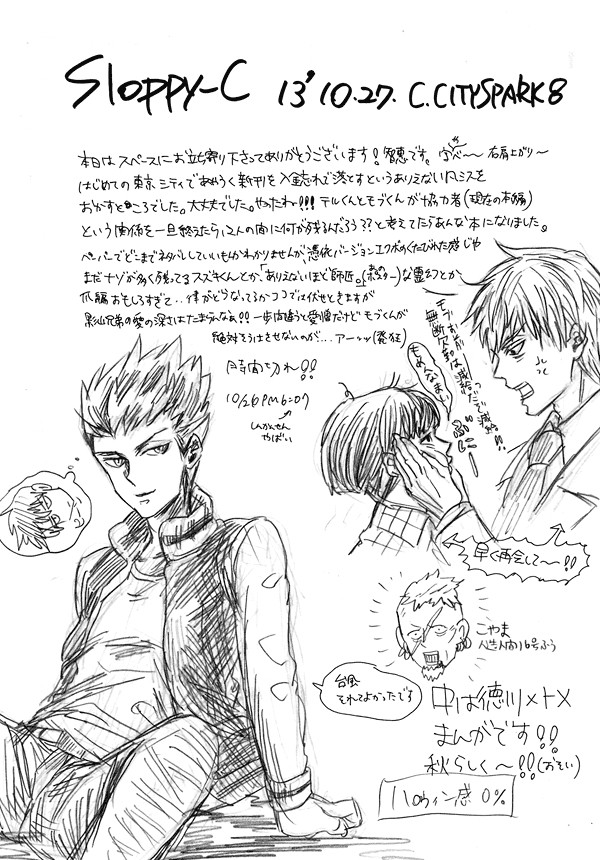 Sloppy-C 13' 10.27. C.CITYSPARK8
本日はスペースにお立ち寄り下さってありがとうございます!智恵です。字ベ〜〜右肩上がり〜
はじめての東京シティであやうく新刊を入金忘れで落とすというありえない凡ミスを
おかすところでした。大丈夫でした。やったね〜!!! テルくんとモブくんが協力者(現在の本編)
という関係を一旦終えたら、2人の間に何が残るんだろう??と考えてたらあんな本になりました。
ペーパーでどこまでネタバレしていいもんかわかりませんが、憑依バージョンエクボのくたびれた感じや
まだナゾが多く残ってるスズキくんとか、「ありえないほど師匠。(ポスター)な霊幻とか
爪編おもしろすぎて..律がどうなってるかココでは伏せときますが
影山兄弟の愛の深さはたまらんなぁ!! 一歩間違うと愛憎だけどモブくんが
絶対そうはさせないのが... アーッッ(発狂)
時間切れ!!
10/26 PM6:07
しんかんせん
やばい
モブおまえ
無断欠勤は減給だって
減給!!
もめんなまい
ぶに
早く再会して〜!!
こやま
人造人間16号ふう
台風
それてよかったです
中は徳川×十×
まんがです!!
秋らしく〜!!(おそい)
ハロウィン感 0%